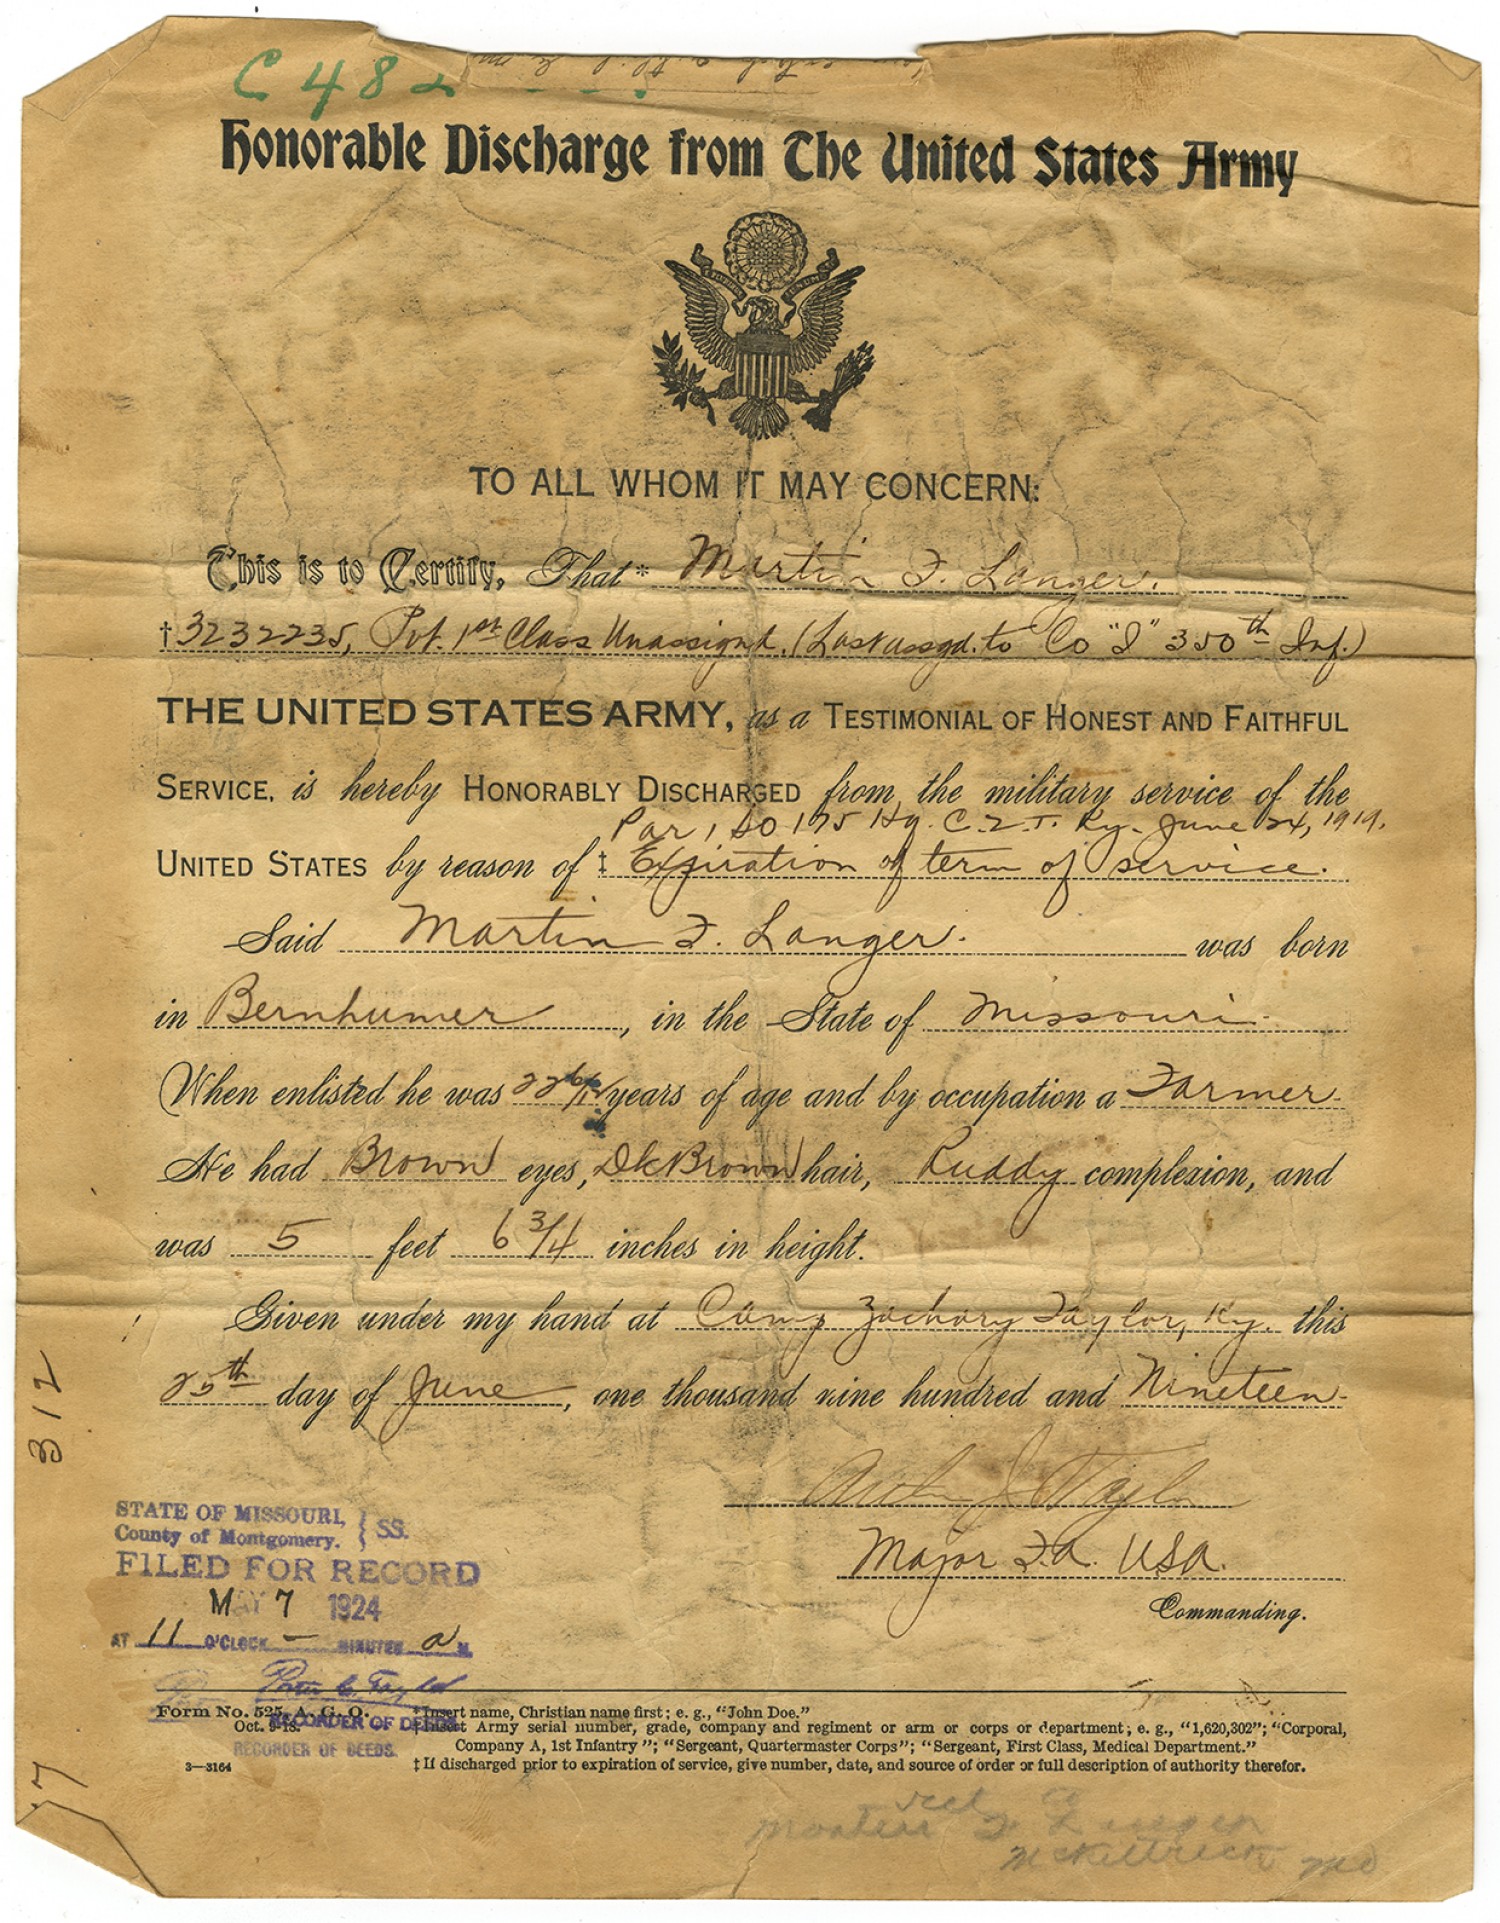 C 48
Honorable Discharge from The United States Army
TO ALL WHOM IT MAY CONCERN:
This is to Certify, That* Martin F. Langer.
†3232235, Pvt. 1st Class Unassignd. (Last assgd. to Co "I" 350th Inf.)
THE UNITED STATES ARMY, as a TESTIMONIAL OF HONEST AND FAITHFUL
SERVICE, is hereby HONORABLY DISCHARGED from the military service of the
Par 1 SO 175 Hq. C.Z.T. Ky. June 24, 1919.
UNITED STATES by reason of ‡ Expiration of term of service.
Said Martin F. Langer. was born
in Bernhumer, in the State of Missouri.
When enlisted he was 22 6/12 years of age and by occupation a Farmer.
He had Brown eyes, Dk Brown hair, Ruddy complexion, and
was 5 feet 6 3/4 inches in height.
Given under my hand at Camp Zachary Taylor, Ky. this
25th day of June, one thousand nine hundred and Nineteen.
J Taylor
Major F.A. USA.
Commanding.
312
STATE OF MISSOURI,
County of Montgomery. } SS.
FILED FOR RECORD
MAY 7 1924
AT 11 O'CLOCK – MINUTES a M.
RECORDER OF DEEDS
RECORDER OF DEEDS.
Form No. 525, A. G. O.
Oct. 9-18.
3—3164
*Insert name, Christian name first; e. g., "John Doe."
†Insert Army serial number, grade, company and regiment or arm or corps or department; e. g., "1,620,302"; "Corporal,
Company A, 1st Infantry"; "Sergeant, Quartermaster Corps"; "Sergeant, First Class, Medical Department."
‡If discharged prior to expiration of service, give number, date, and source of order or full description of authority therefor.
McKittrick Mo